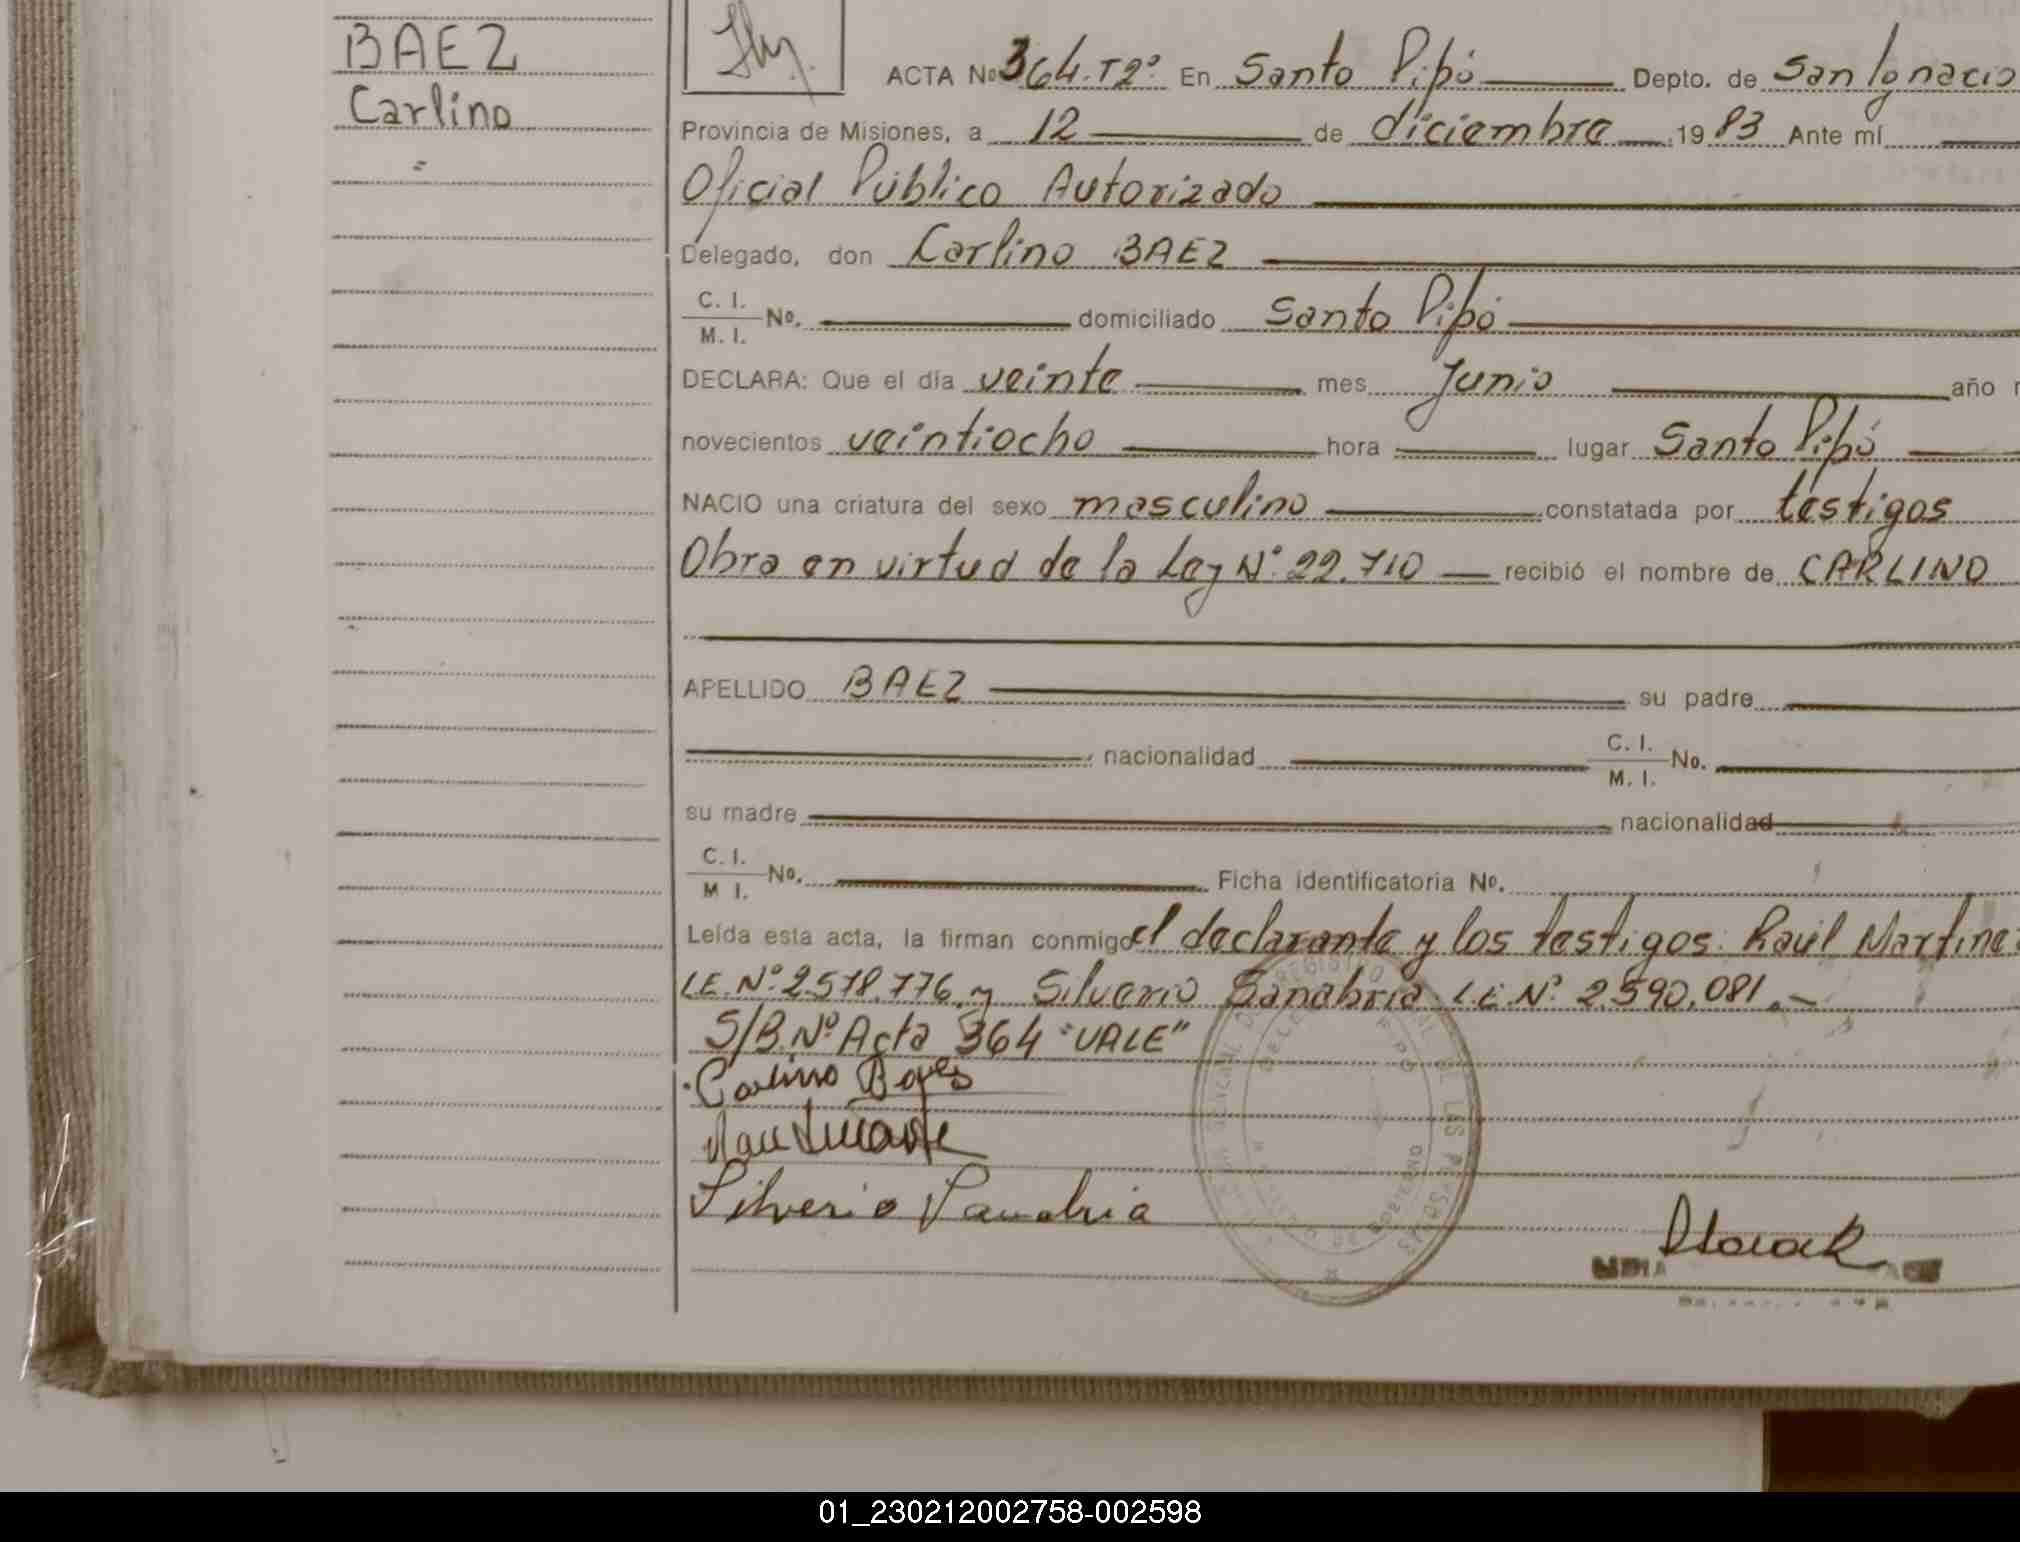 BAEZ
Carlino
ACTA Nº 364. T2º. En Santo Pipó Depto. de San Ignacio
Provincia de Misiones, a 12 de diciembre 19 83 Ante mí
Oficial Público Autorizado
Delegado, don Carlino BAEZ
C. I. / M. I. Nº. domiciliado Santo Pipó
DECLARA: Que el día veinte mes Junio año
novecientos veintiocho hora lugar Santo Pipó
NACIO una criatura del sexo masculino constatada por testigos
Obra en virtud de la Ley Nº. 22.710 recibió el nombre de CARLINO
APELLIDO BAEZ su padre
nacionalidad C. I. / M. I. No.
su madre nacionalidad
C. I. / M I. No. Ficha identificatoria Nº.
Leída esta acta, la firman conmigo el declarante y los testigos: Raúl
L.E. Nº. 2.578.776. y Silverio Sanabria L.E. Nº. 2.590.081.-
S/B. Nº Acta 364 "VALE"
Carlino
Silverio Sanabria
01_230212002758-002598